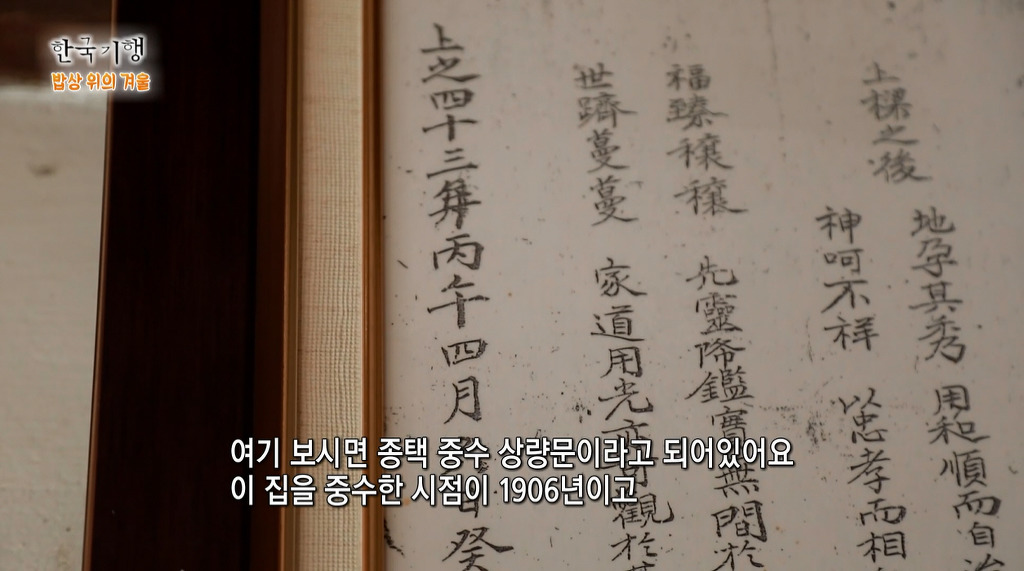 한국기행
밥상 위의 겨울
上樑之後
地孕其秀 用和順而自
神呵不祥 以忠孝而相
福臻穰穰 先靈降鑑實無間於
世躋蔓蔓 家道用光 觀於
上之四十三年丙午四月 癸
여기 보시면 종택 중수 상량문이라고 되어있어요
이 집을 중수한 시점이 1906년이고